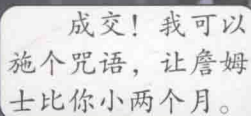 成交！我可以
施个咒语，让詹姆
士比你小两个月。